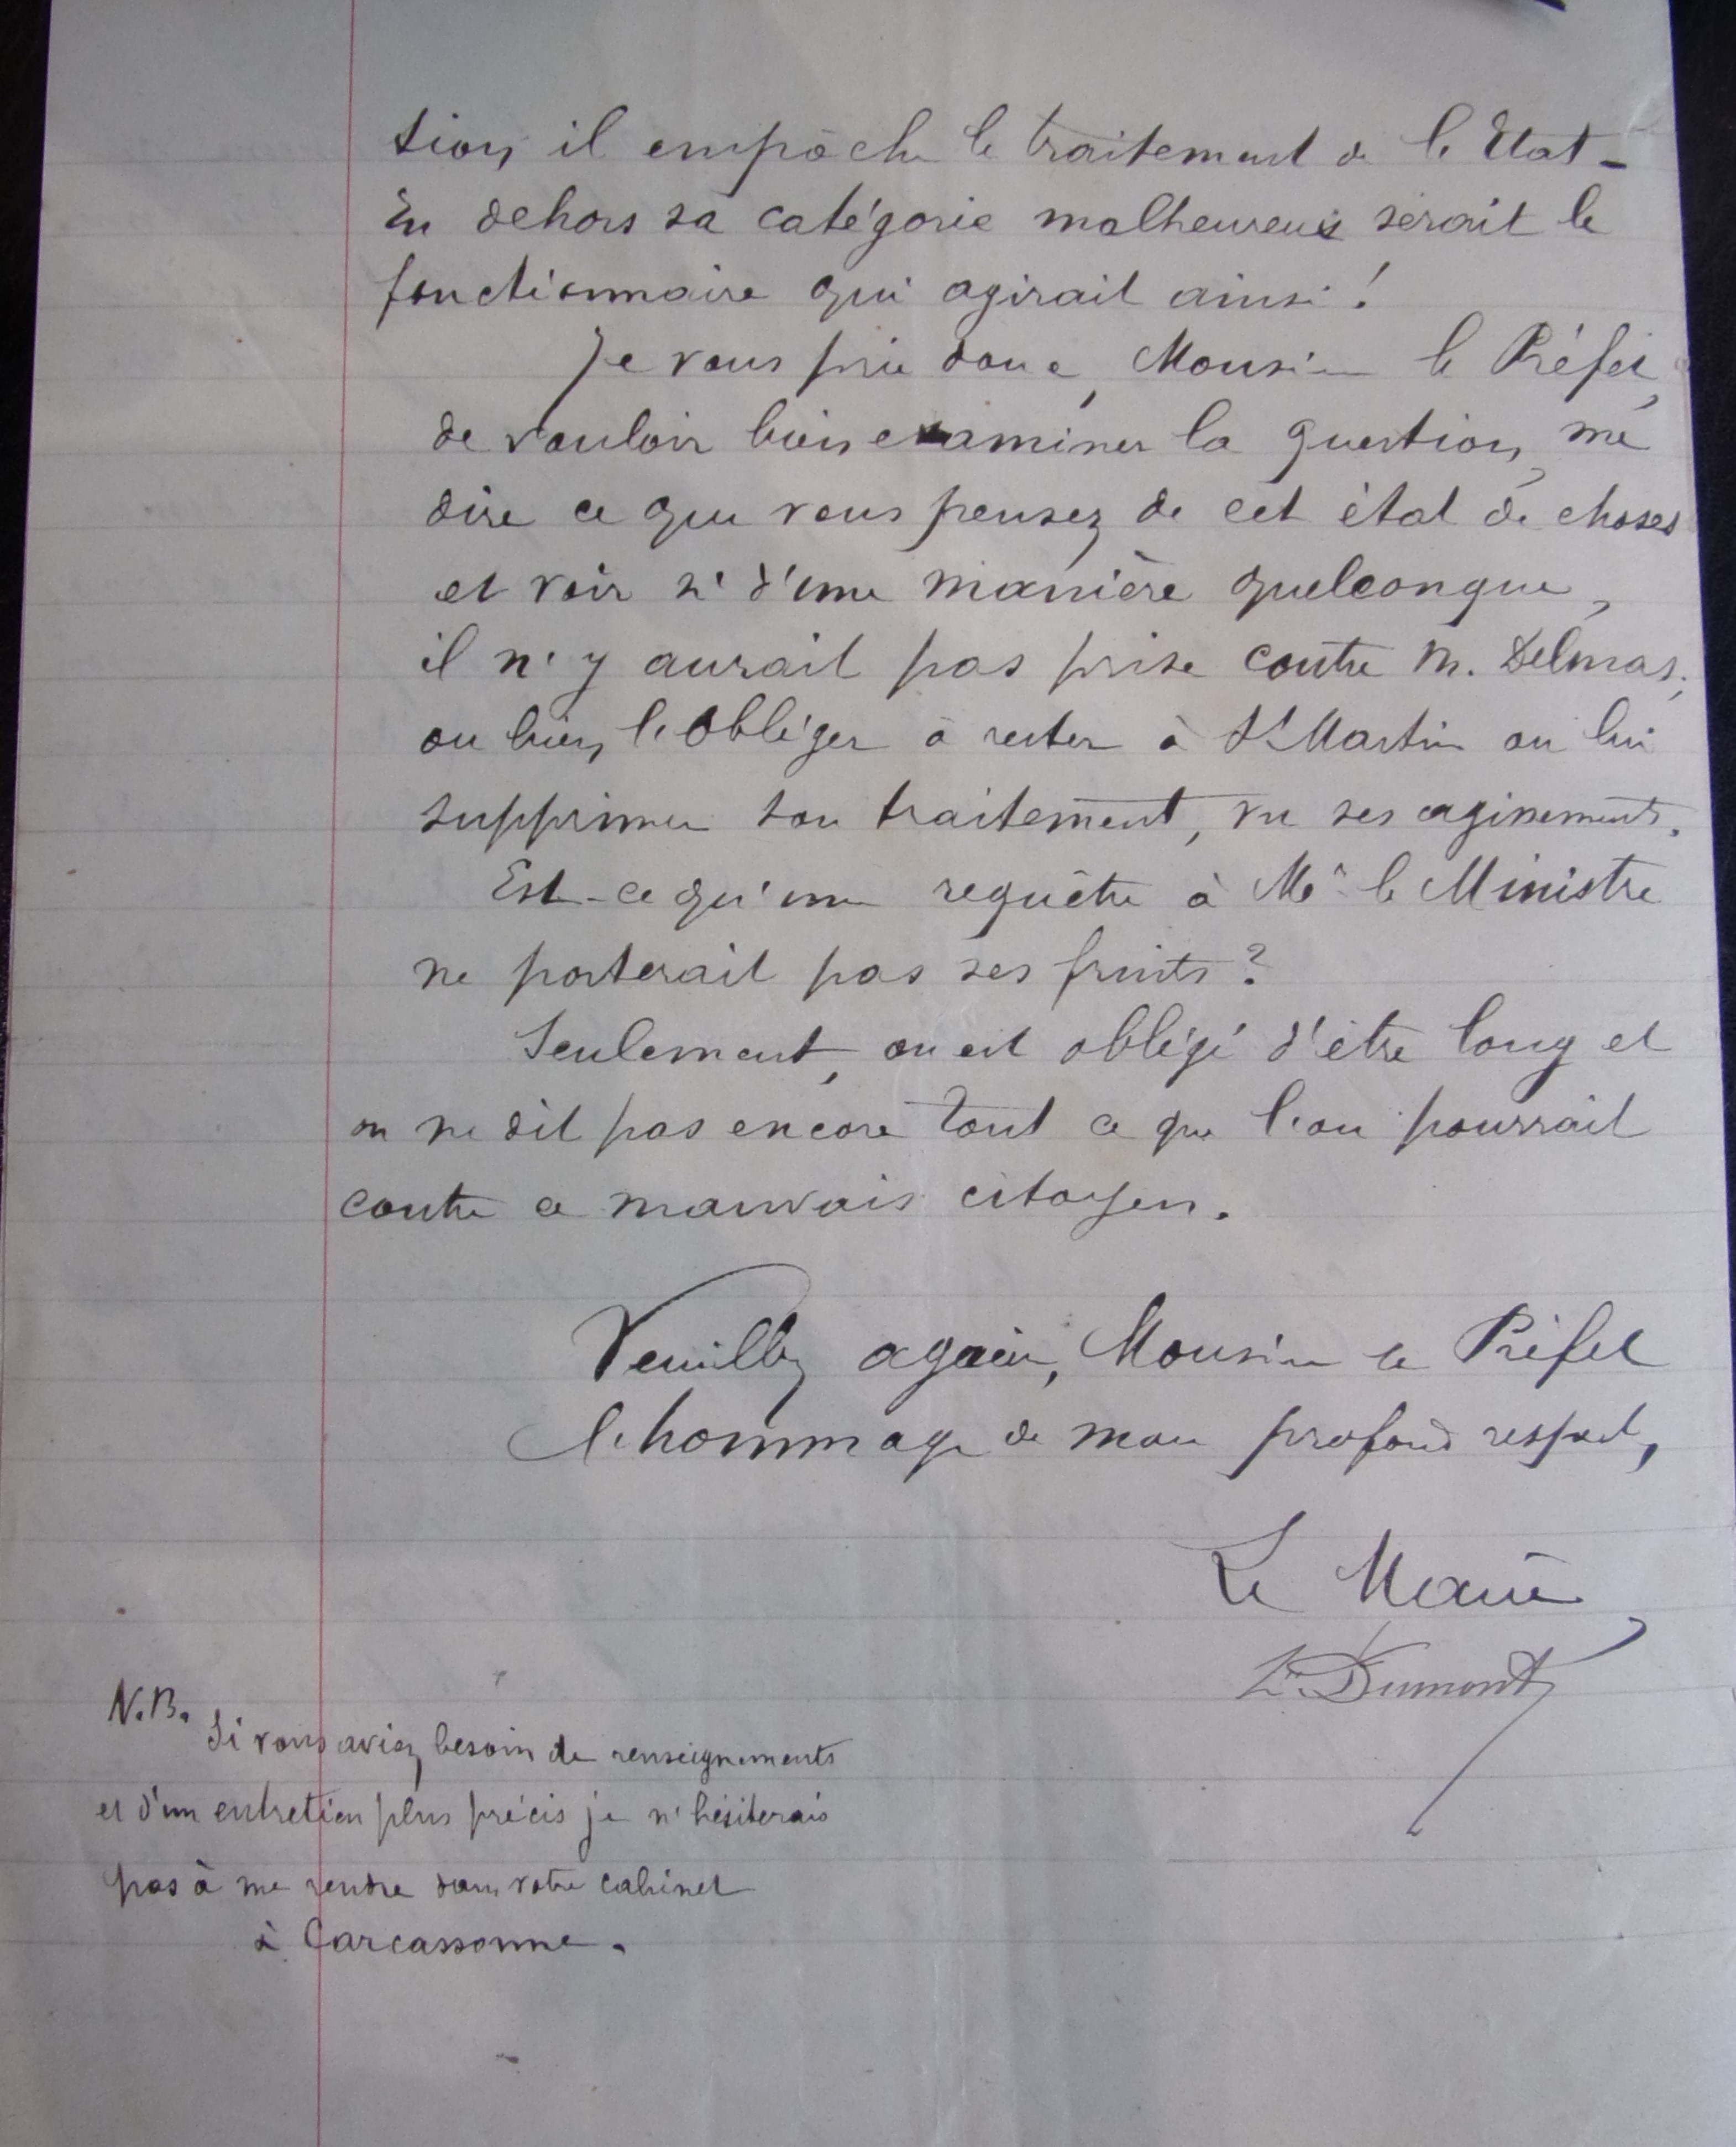 tion, il empoche le traitement de l'Etat -
En dehors sa catégorie malheureux serait le
fonctionnaire qui agirait ainsi !
Je vous prie donc, Monsieur le Préfet,
de vouloir bien examiner la question, me
dire ce que vous pensez de cet état de choses
et voir si d'une manière quelconque,
il n'y aurait pas prise contre M. Delmas;
ou bien, l'obliger à rester à St Martin ou lui
supprimer son traitement, vu ses agissements.
Est-ce qu'une requête à Mr le Ministre
ne porterait pas ses fruits ?
Seulement, on est obligé d'être long et
on ne dit pas encore tout ce que l'on pourrait
contre ce mauvais citoyen.
Veuillez agréer, Monsieur le Préfet
l'hommage de mon profond respect,
Le Maire,
Dumont
N.B. Si vous aviez besoin de renseignements
et d'un entretien plus précis je n'hésiterais
pas à me rendre dans votre cabinet
à Carcassonne.